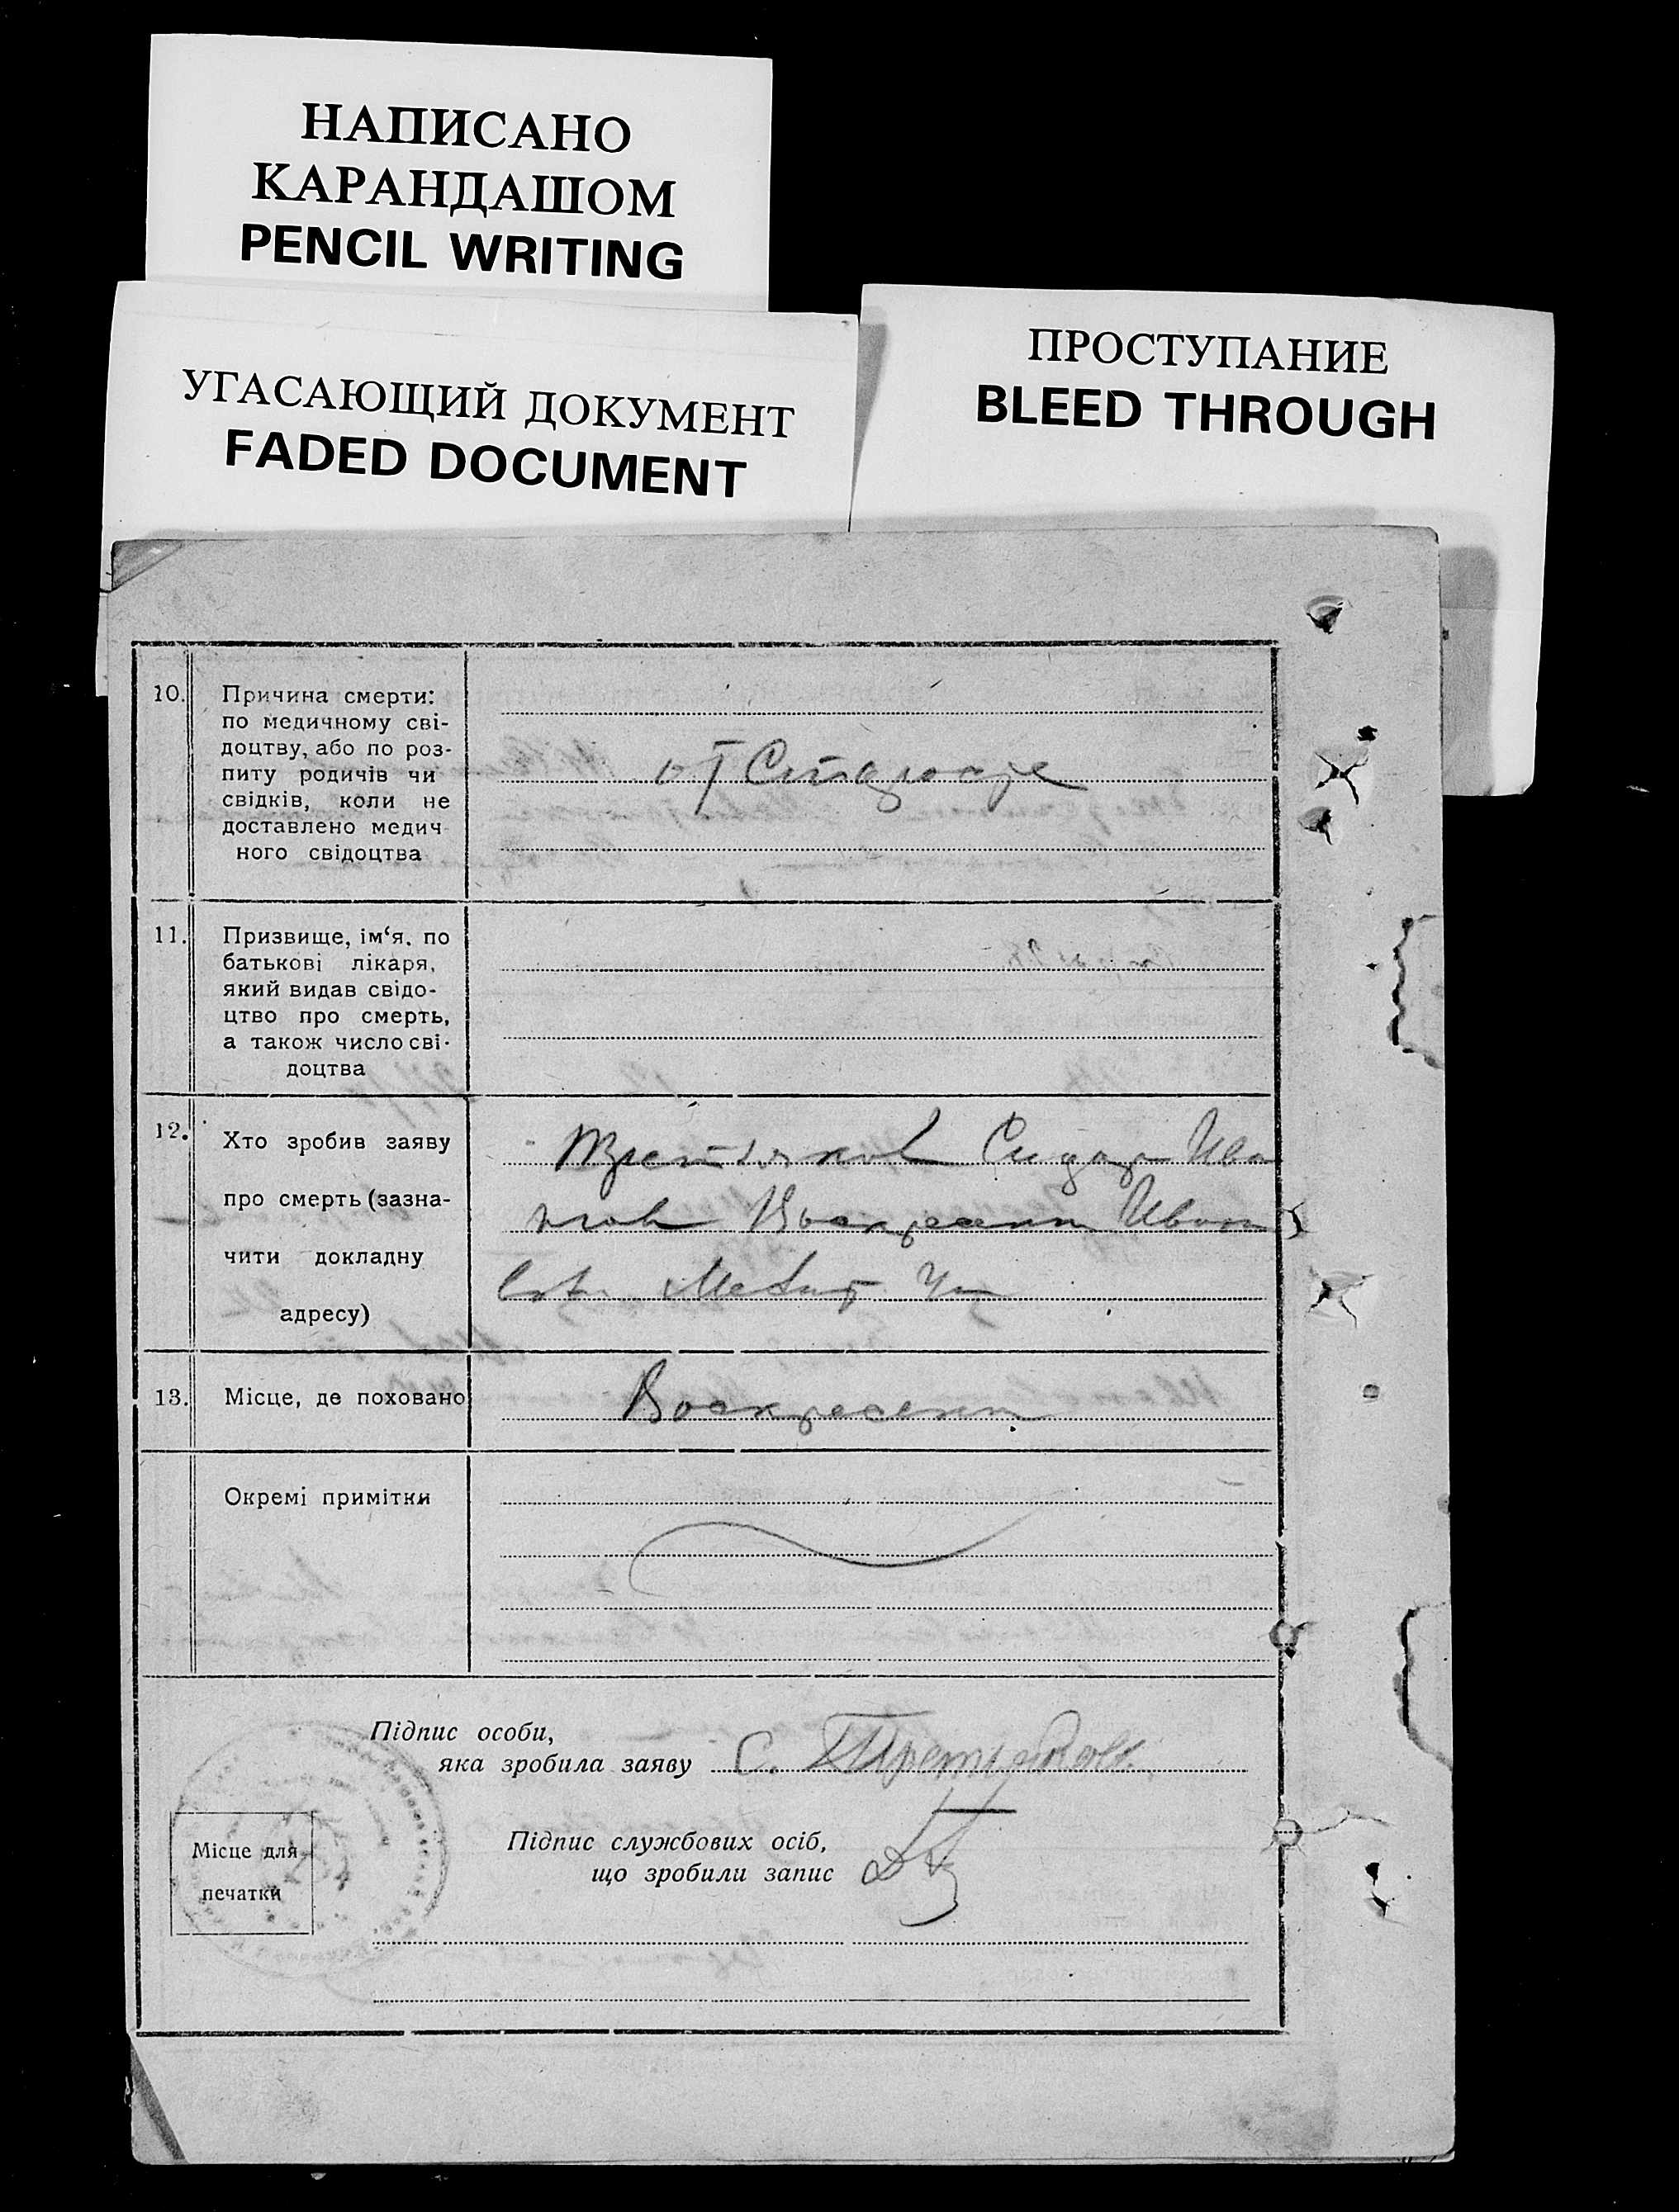 НАПИСАНО
КАРАНДАШОМ
PENCIL WRITING
УГАСАЮЩИЙ ДОКУМЕНТ
FADED DOCUMENT
ПРОСТУПАНИЕ
BLEED THROUGH
10. Причина смерти:
по медичному сві-
доцтву, або по роз-
питу родичів чи
свідків, коли не
доставлено медич
ного свідоцтва
от
11. Призвище, ім‘я, по
батькові лікаря,
який видав свідо-
цтво про смерть,
а також число сві-
доцтва
12. Хто зробив заяву
про смерть (зазна-
чити докладну
адресу)
Третьяков Сидор Ива
13. Місце, де поховано
Воскресенк
Окремі примітки
Підпис особи,
яка зробила заяву С. Третьяков
Підпис службових осіб,
що зробили запис
Місце для
печатки